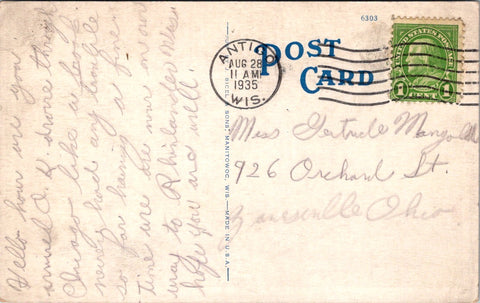 6303
POST
CARD
ANTIGO
AUG 28
11 AM
1935
WIS.
UNITED STATES POSTAGE
1 CENT 1
SONS, MANITOWOC, WIS.—MADE IN U.S.A.
Miss Gertrude
926 Orchard St.
Zanesville Ohio
Hello how are you
arrived O. K. drove through
Chicago like
had any trouble
so far having a fine
time are now on our
way to Rhinelander
hope you are well.